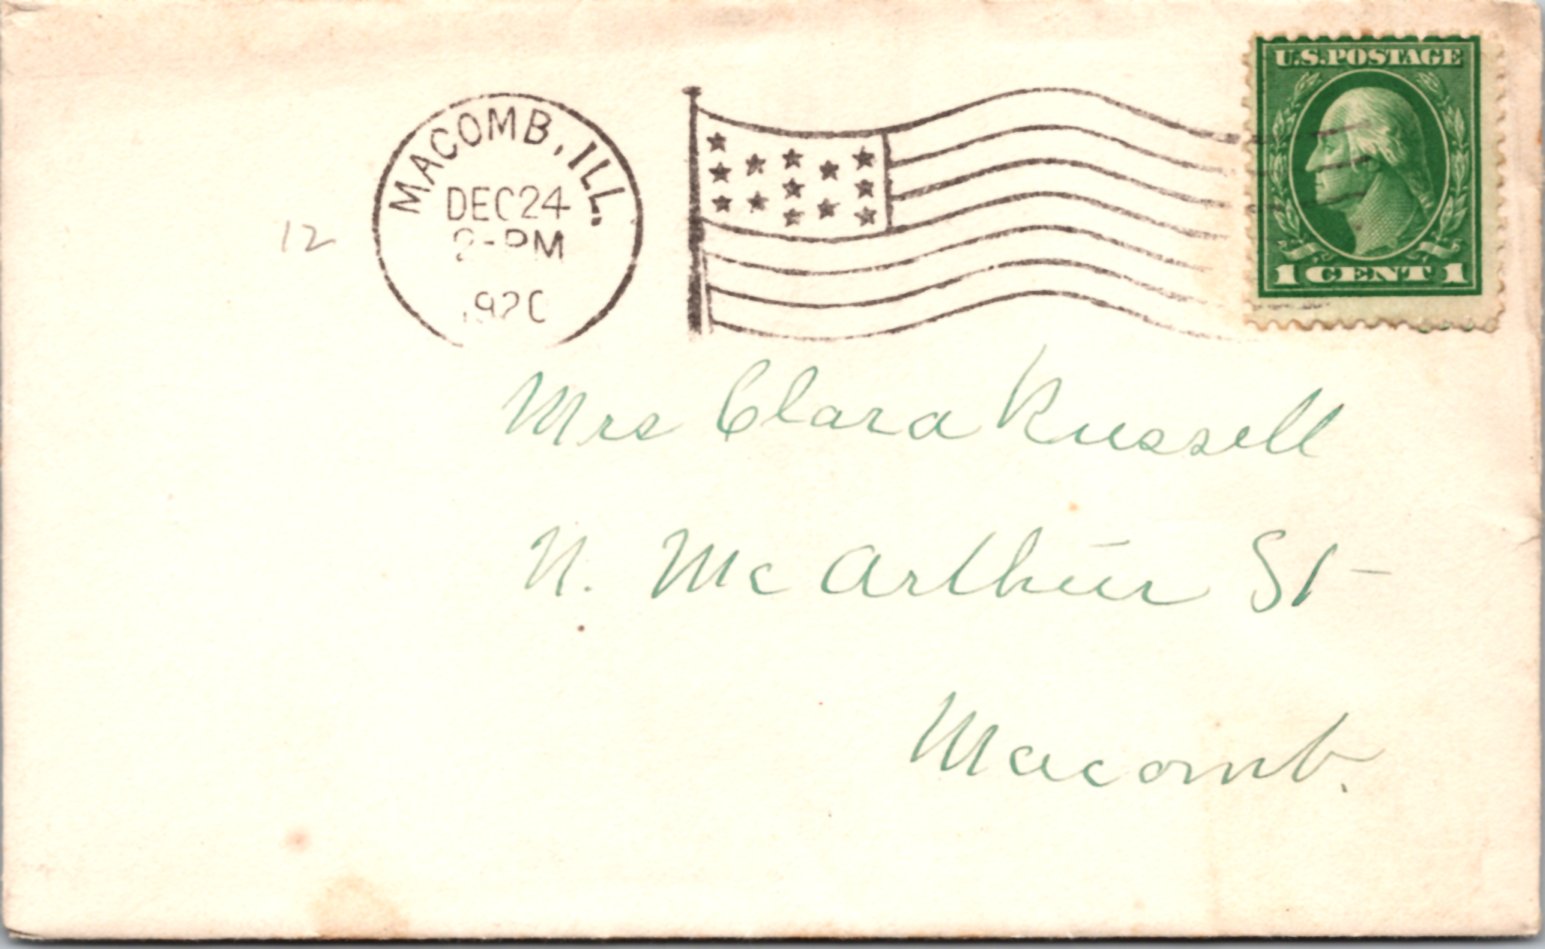 U.S. POSTAGE
MACOMB, ILL.
DEC 24
2-PM
1920
12
1 CENT 1
Mrs Clara Russell
N. McArthur St-
Macomb.